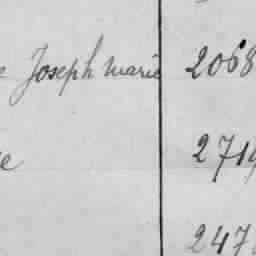 e Joseph marie 2068
e 2719
247